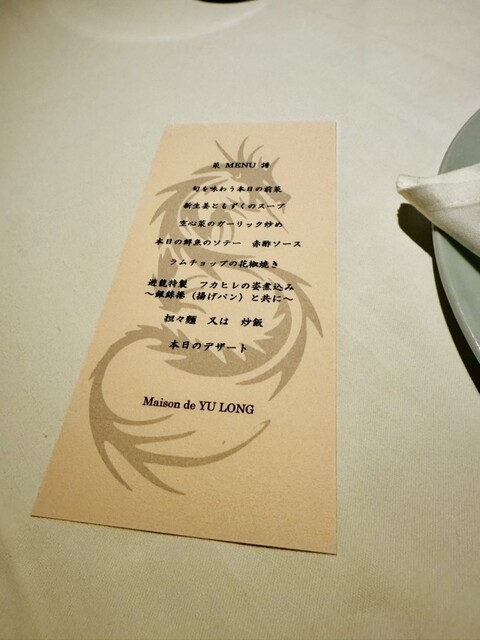 菜 MENU 譜
旬を味わう本日の前菜
新生姜ともずくのスープ
空心菜のガーリック炒め
本日の鮮魚のソテー 赤酢ソース
ラムチョップの花椒焼き
遊龍特製 フカヒレの姿煮込み
～銀絲捲（揚げパン）と共に～
担々麺 又は 炒飯
本日のデザート
Maison de YU LONG